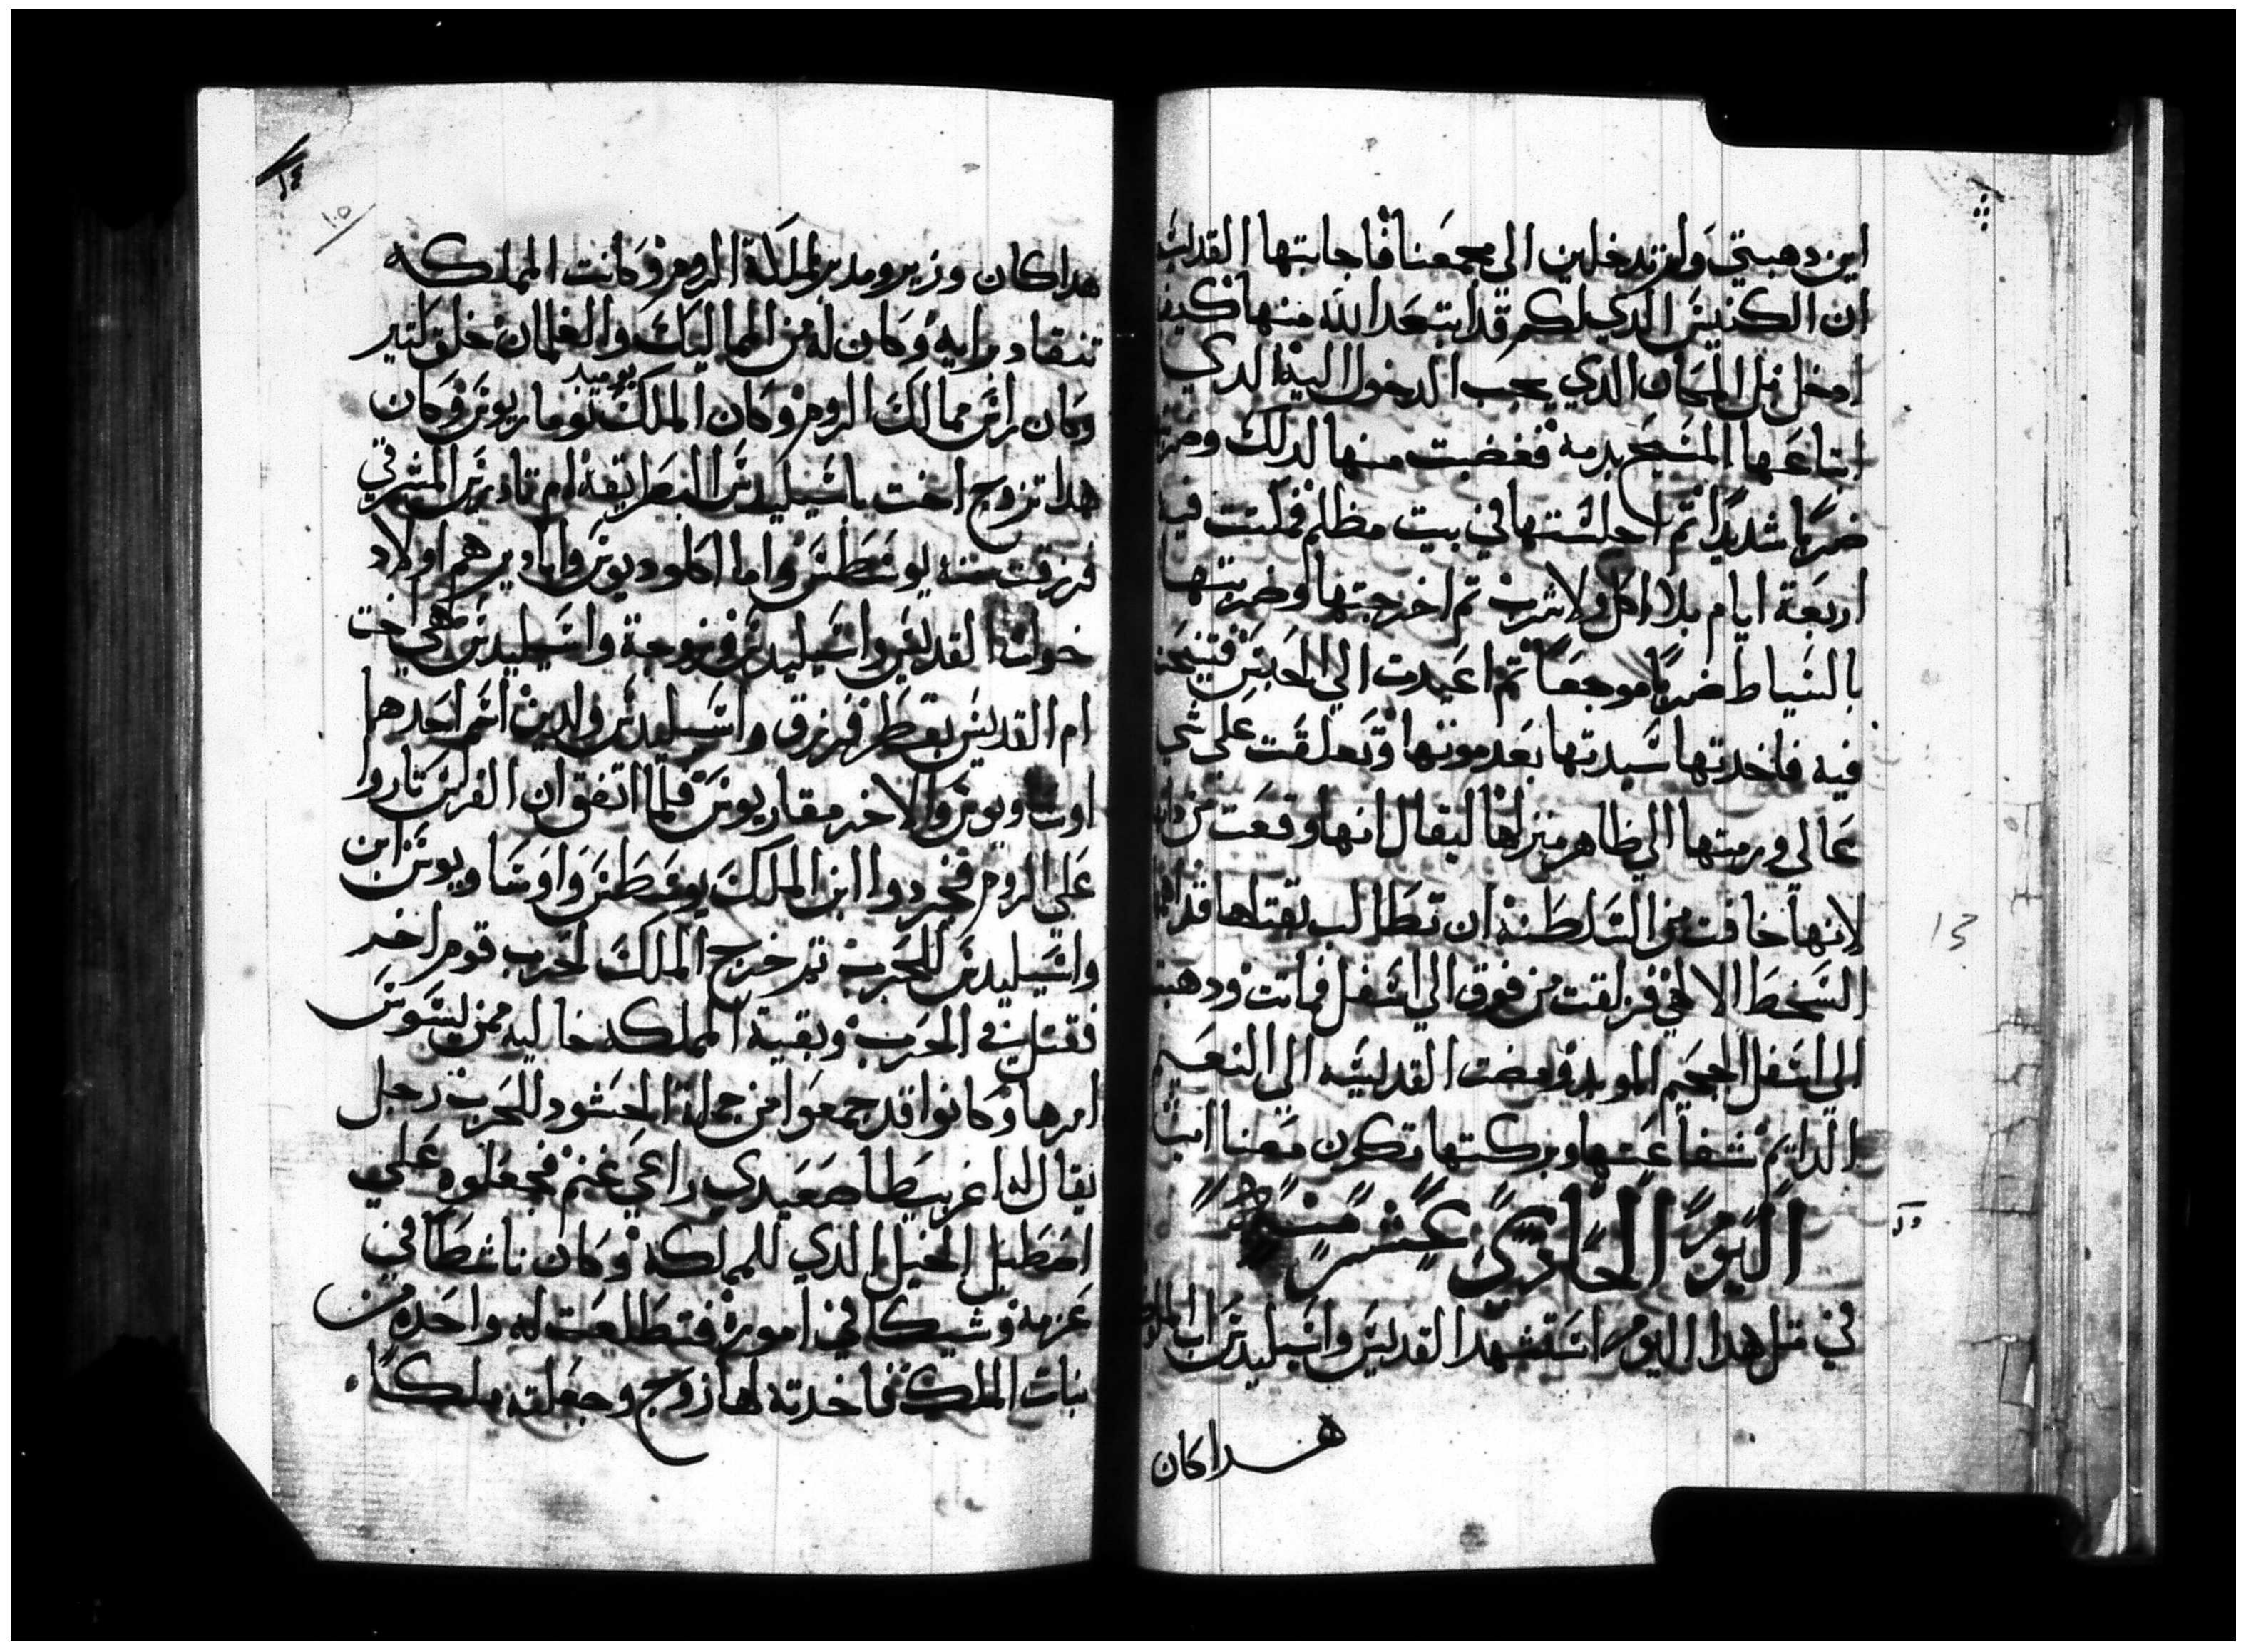 اين دهبتي ولم تدخلين الي مجمعنا فاجابتها القديسه
ان الكنيس الدي لكم قد ابتعد الله منها كيف
ادخل فيل المكان الدي يجب الدخول اليه الدي
ابتاعها المسيح بدمه فغضبت منها لدلك وضربتها
ضربا شديدا ثم اجلستها في بيت مظلم فمكتت فيه
اربعة ايام بلا اكل ولا شرب ثم اخرجتها وضربتها
بالسياط ضربا موجعا ثم اعيدت الي الحبس فتنيحت
فيه فاخدتها سيدتها بعد موتها وتعلقت علي شي
عالي ورمتها الي ظاهر منزلها ليقال انها وقعت من داتها
لانها خافت من السلطنه ان تطالب بقتلها فدركها
السخط الالهي فزلقت من فوق الي اسفل فماتت ودهبت
الي اسفل الجحيم الموبد ومضت القديسه الي النعيم
الدايم شفاعتها وبركتها تكون معنا امين
اليوم الحادي عشر منه
في متل هدا اليوم استشهد القديس واسيليدس اب الملوك
هدا كان
١٤
١٥
هدا كان وزير ومدبر لمملكة الروم وكانت المملكه
تنقاد برايه وكان له من المماليك والغلمان خلق كتير
وكان راس ممالك الروم وكان الملك يوميد نوماريوس وكان
هدا تزوج اخت باسيليدس البطريقه ام تادرس المشرقي
فرزقت منه يوسطس واما اكلوديوس وابادير هم اولاد
خوات القديس واسيليدس وزوجة واسيليدس هي اخت
ام القديس بقطر فرزق واسيليدس ولدين اسم احدهما
اوساويوس والاخر مقاريوس فلما اتفق ان الفرس تاروا
علي الروم فجردوا ابن الملك يوسطس واوساويوس ابن
واسيليدس للحرب ثم خرج الملك لحرب قوم اخر
فقتل في الحرب وبقية المملكه خاليه ممن يسوس
امرها وكانوا قد جمعوا من جملة الحشود للحرب رجل
يقال له اغريبيطا صعيدي راعي غنم فجعلوه علي
اصطبل الخيل الدي للمملكه وكان ناشطا في
عزمه وشيكا في اموره فتطلعت له واحده من
بنات الملك فاخدته لها زوج وجعلته ملكا